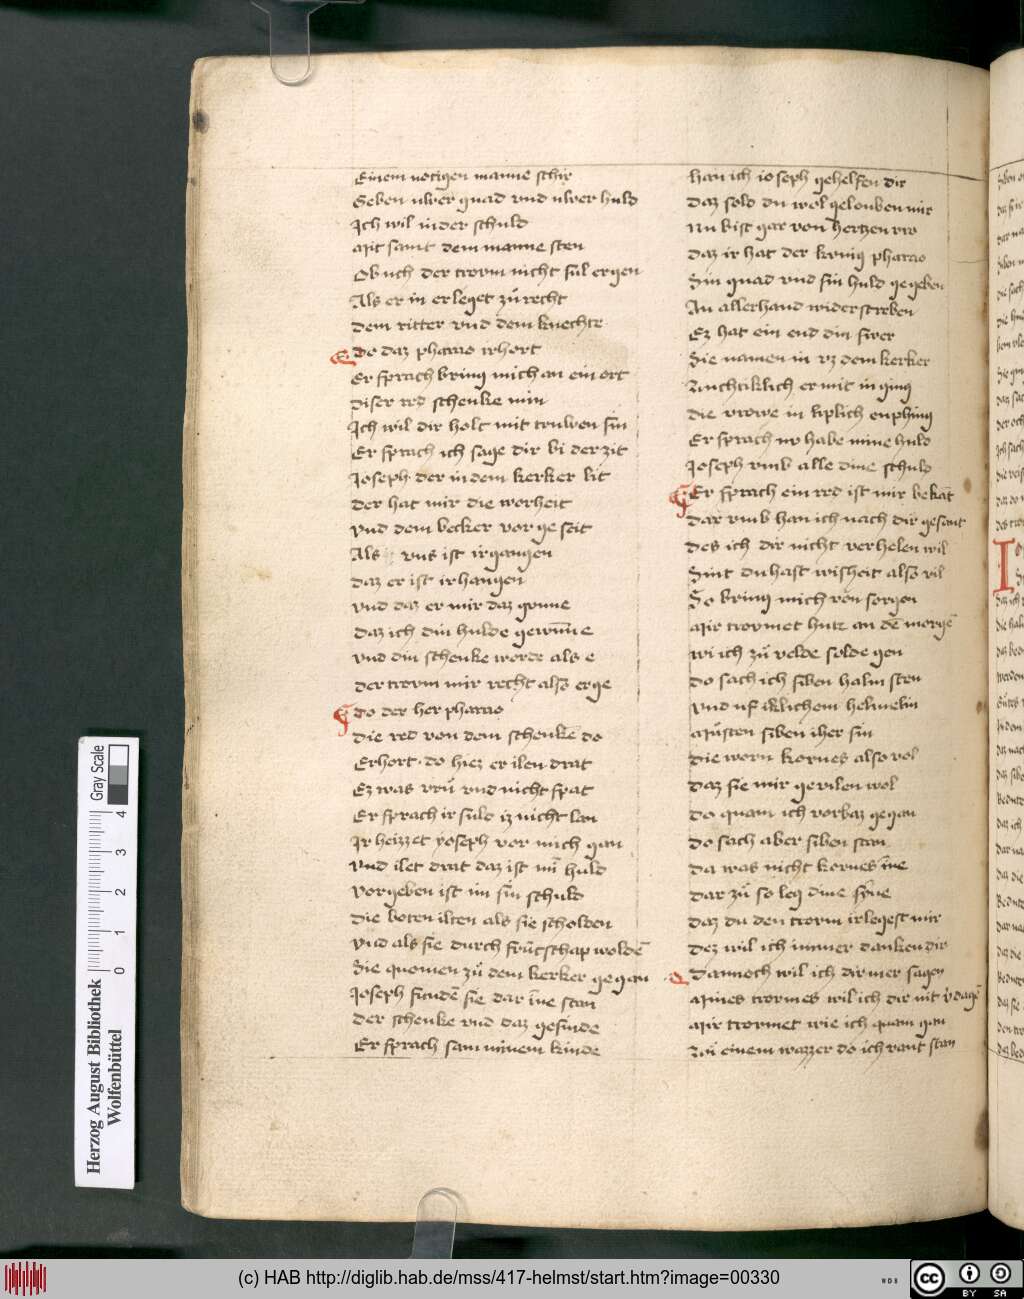 Einem notigen manne schir
Geben uwer gnad vnd uwer huld
Ich wil in der schuld
Mit samt dem manne sten
Ob uch der trovm nicht sul ergen
Als er in erleget zů recht
Dem ritter vnd dem knechte
Do daz pharao irhort
Er sprach bring mich an ein ort
Diser red schenke min
Ich wil dir holt mit truwen sin
Er sprach ich sage dir bi der zit
Joseph der in dem kerker lit
Der hat mir die worheit
Vnd dem becker vor geseit
Als vns ist irgangen
Daz er ist irhangen
Vnd daz er mir daz gonne
Daz ich din hulde gewinne
Vnd din schenke worde als e
Der trovm mir recht also erge
Do der her pharao
Die red von dem schenkē do
Erhort do hiez er ilen drat
Ez was vru vnd nicht spat
Er sprach ir suld iz nicht lan
Ir heizzet yoseph vor mich gan
Vnd ilet drat daz ist mī huld
Vorgeben ist im sin schuld
Die boten ilten als sie scholden
Vnd als sie durch frūtschap woldē
Sie quomen zů dem kerker gegan
Joseph fundē sie dar īne stan
Der schenke vnd daz gesinde
Er sprach sam minem kinde
Han ich ioseph gehelfen dir
Daz sold du wol gelouben mir
Nu bist gar von hertzen vro
Daz ir hat der konig pharao
Sin gnad vnd sin huld gegeben
An allerhand widerstreben
Ez hat ein end din swer
Sie namen in vz dem kerker
Zuchtiklich er mit in ging
Die vrowe in liplich enphing
Er sprach nv habe mine huld
Joseph vmb alle dine schuld
Er sprach ein red ist mir bekāt
Dar vmb han ich nach dir gesant
Des ich dir nicht verhelen wil
Sint du hast wisheit also vil
So bring mich von sorgen
Mir trovmet hute an dē morgē
Wi ich zů velde solde gen
Do sach ich siben halm sten
Vnd uf iklichem helmelin
Musten siben eher sin
Die worn kornes also vol
Daz sie mir gevilen wol
Do quam ich vorbaz gegan
Do sach aber siben stan
Da was nicht kornes īne
Dar zů so leg dine sȳne
Daz du den trovm irlegest mir
Dez wil ich immer danken dir
Dannoch wil ich dir mer sagen
Mines trovmes wil ich dir nit v̓dagē
Mir trovmet wie ich quam gan
Zu einem wazzer do ich vant stan
Herzog August Bibliothek
Wolfenbüttel
0 1 2 3 4
Gray Scale
(c) HAB http://diglib.hab.de/mss/417-helmst/start.htm?image=00330
WDB
CC BY SA